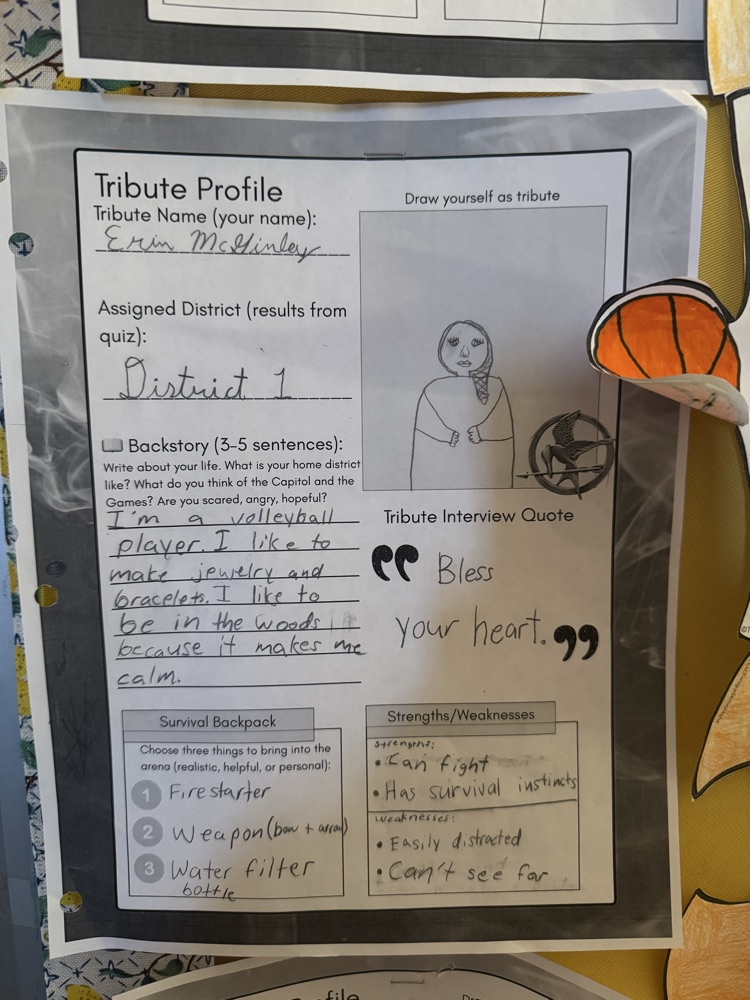 Tribute Profile
Tribute Name (your name):
Erin McGinley
Assigned District (results from
quiz):
District 1
Backstory (3-5 sentences):
Write about your life. What is your home district
like? What do you think of the Capitol and the
Games? Are you scared, angry, hopeful?
I'm a volleyball
player. I like to
make jewelry and
bracelets. I like to
be in the woods
because it makes me
calm.
Draw yourself as tribute
Tribute Interview Quote
“ Bless
your heart. ”
Survival Backpack
Choose three things to bring into the
arena (realistic, helpful, or personal):
1 Firestarter
2 Weapon (bow + arrow)
3 Water filter
bottle
Strengths/Weaknesses
Strengths:
• Can fight
• Has survival instincts
Weaknesses:
• Easily distracted
• Can't see far